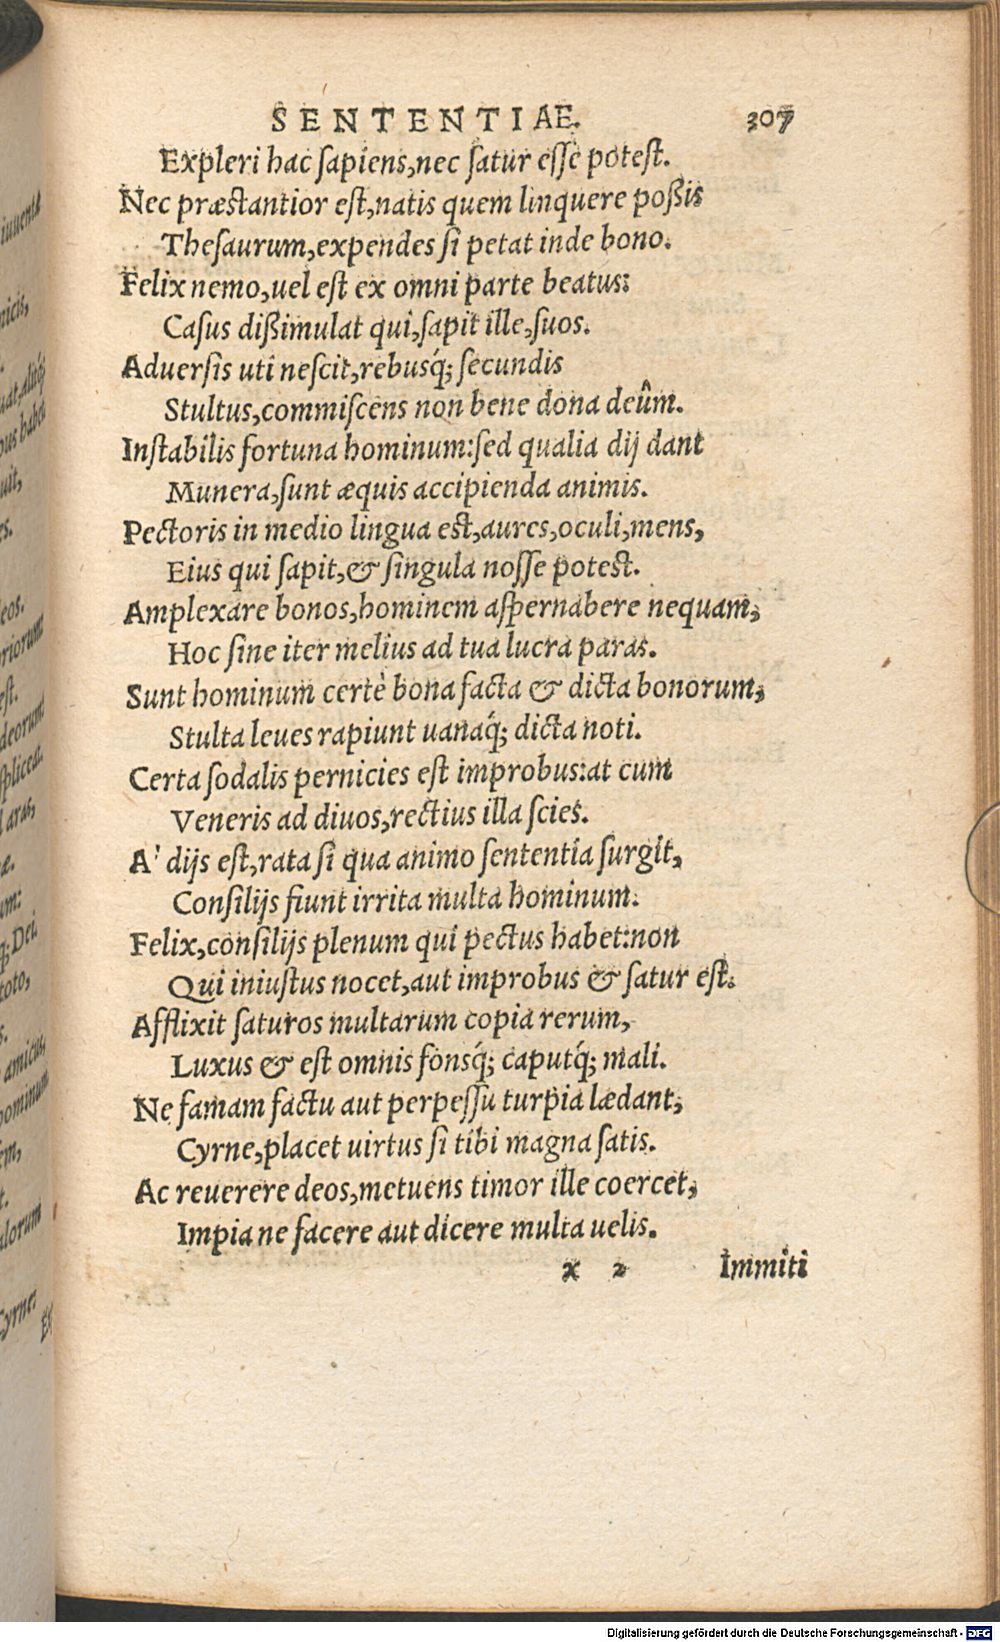 SENTENTIAE. 307
Expleri hac ſapiens, nec ſatur eſſe poteſt.
Nec præstantior eſt, natis quem linquere poßis
Theſaurum, expendes ſi petat inde bono.
Felix nemo, uel eſt ex omni parte beatus:
Caſus dißimulat qui, ſapit ille, ſuos.
Aduerſis uti neſcit, rebusq́; ſecundis
Stultus, commiſcens non bene dona deûm.
Inſtabilis fortuna hominum: ſed qualia dij dant
Munera, ſunt æquis accipienda animis.
Pectoris in medio lingua est, aures, oculi, mens,
Eius qui ſapit, & ſingula noſſe potest.
Amplexare bonos, hominem aſpernabere nequam,
Hoc ſine iter melius ad tua lucra paras.
Sunt hominum certè bona facta & dicta bonorum,
Stulta leues rapiunt uanaq́; dicta noti.
Certa ſodalis pernicies eſt improbus: at cum
Veneris ad diuos, rectius illa ſcies.
A' dijs eſt, rata ſi qua animo ſententia ſurgit,
Conſilijs fiunt irrita multa hominum.
Felix, conſilijs plenum qui pectus habet: non
Qui iniuſtus nocet, aut improbus & ſatur eſt.
Afflixit ſaturos multarum copia rerum,
Luxus & eſt omnis fonsq́; caputq́; mali.
Ne famam factu aut perpeſſu turpia lædant,
Cyrne, placet uirtus ſi tibi magna ſatis.
Ac reuerere deos, metuens timor ille coercet,
Impia ne facere aut dicere multa uelis.
x 2 Immiti
Digitalisierung gefördert durch die Deutsche Forschungsgemeinschaft - DFG